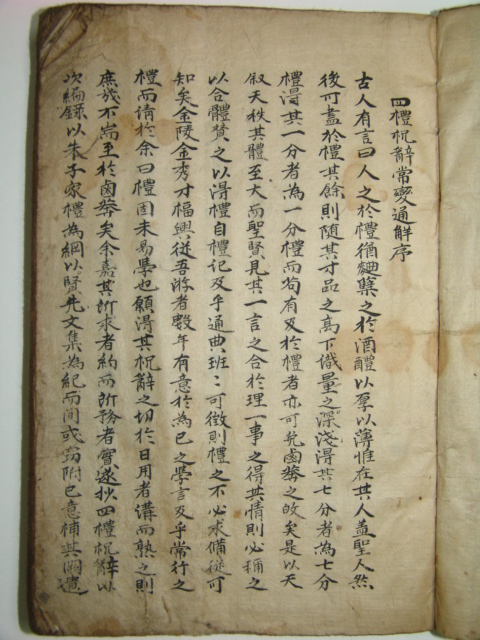 四禮祝辭常變通解序
古人有言曰人之於禮猶麯蘖之於酒醴以厚以薄惟在其人盖聖人然
後可盡於禮其餘則隨其才品之高下儀量之深淺得其七分者為七分
禮得其一分者為一分禮而苟有及於禮者亦可免鹵莽之故矣是以天
叙天秩其體至大而聖賢見其一言之合於理一事之得其情則必稱之
以合體贊之以得禮自禮記及乎通典班〻可徵則禮之不必求備從可
知矣金陵金秀才福興從吾游者數年有意於為己之學言及乎常行之
禮而倩於余曰禮固未易學也願得其祝辭之切於日用者講而熟之則
庶幾不耑至於鹵莽矣余嘉其所求者約而所務者實遂抄四禮祝辭以
次編錄以朱子家禮為綱以賢先文集為紀而間或窃附己意補其闕遺